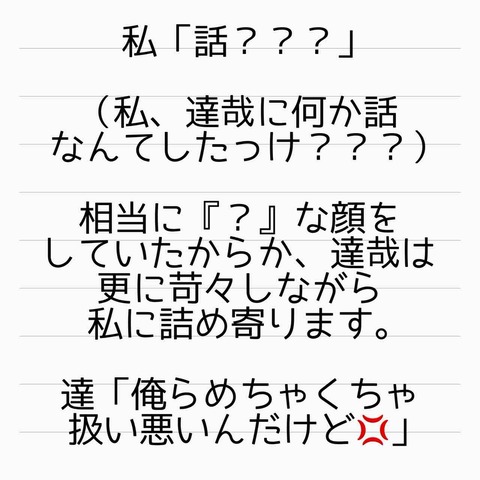 私「話？？？」
（私、達哉に何か話
なんてしたっけ？？？）
相当に『？』な顔を
していたからか、達哉は
更に苛々しながら
私に詰め寄ります。
達「俺らめちゃくちゃ
扱い悪いんだけど💢」